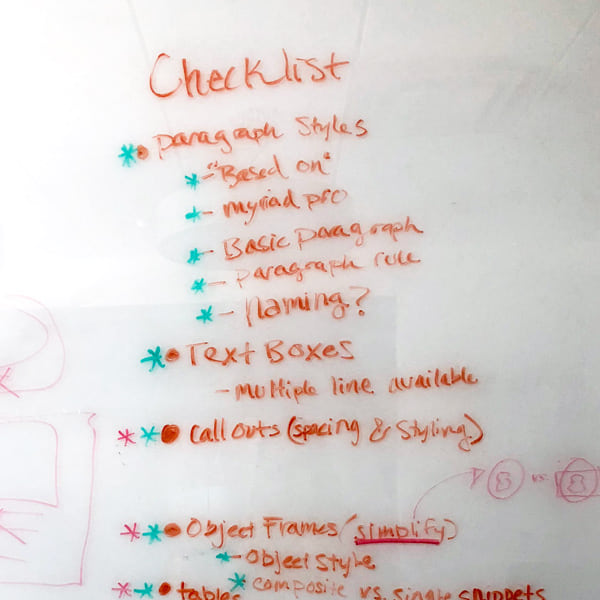 Checklist
* • Paragraph Styles
* - "Based on"
* - Myriad pro
* - Basic paragraph
* - Paragraph rule
* - Naming?
* • Text Boxes
- Multiple line available
* * • Call Outs (spacing & Styling)
8 vs. 8
* * • Object Frames (simplify)
* - Object Style
* * • tables
* composite vs. single snippets